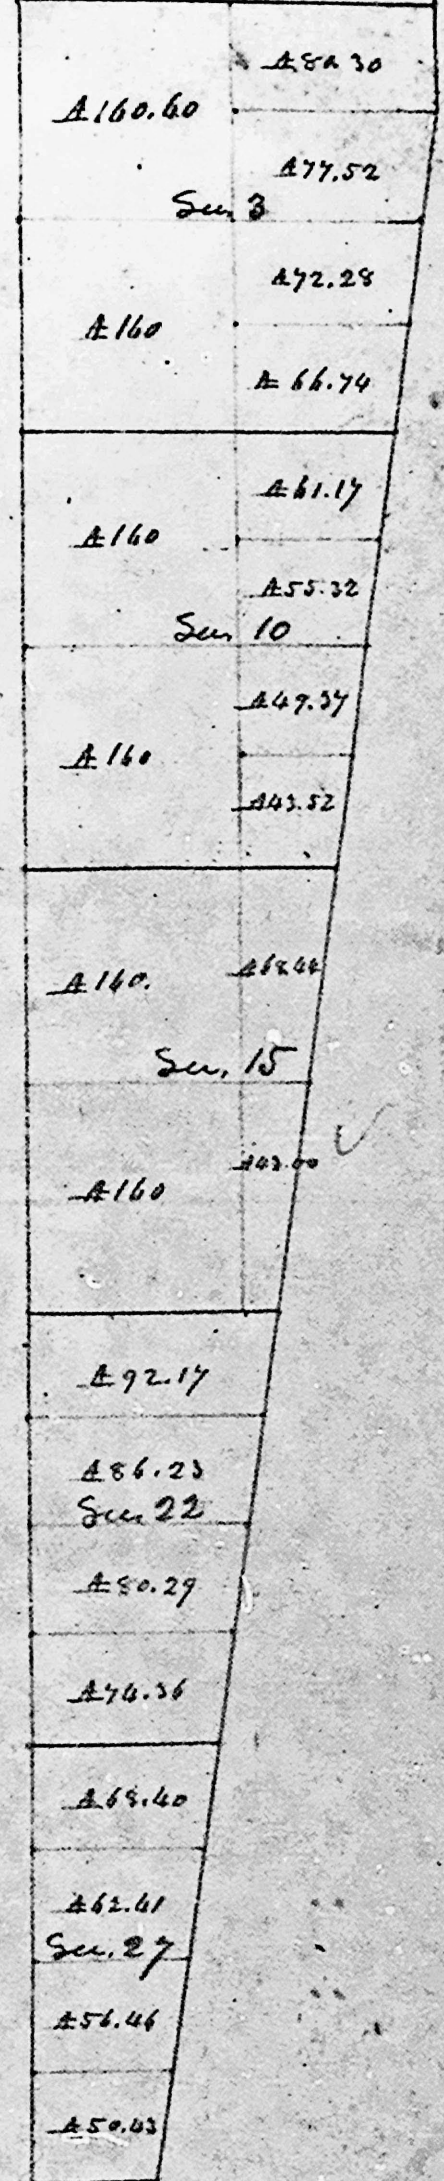 A 82.30
A 160.60
A 77.52
Sec. 3
A 72.28
A 160
A 66.74
A 61.17
A 160
A 55.32
Sec. 10
A 49.37
A 160
A 43.52
A 68.44
A 160.
Sec. 15
A 160
A 92.17
A 86.23
Sec. 22
A 80.29
A 74.36
A 68.40
A 62.41
Sec. 27
A 56.46
A 50.43